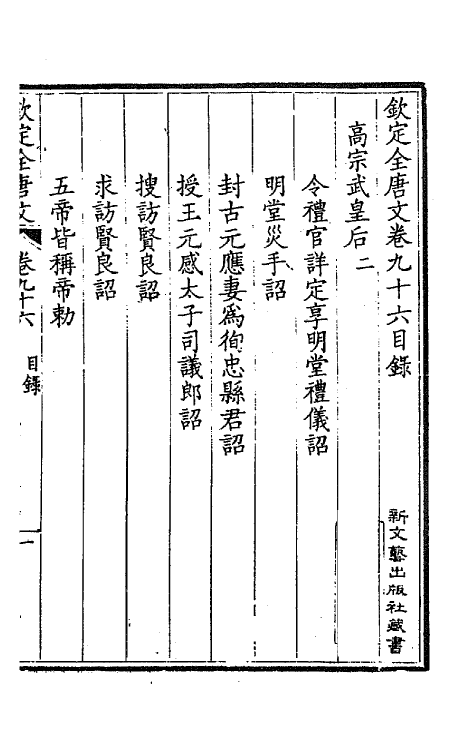 欽定全唐文卷九十六目錄
新文藝出版社藏書
高宗武皇后二
令禮官詳定享明堂禮儀詔
明堂災手詔
封古元應妻為徇忠縣君詔
授王元感太子司議郎詔
搜訪賢良詔
求訪賢良詔
五帝皆稱帝勅
欽定全唐文 卷九十六 目錄 一